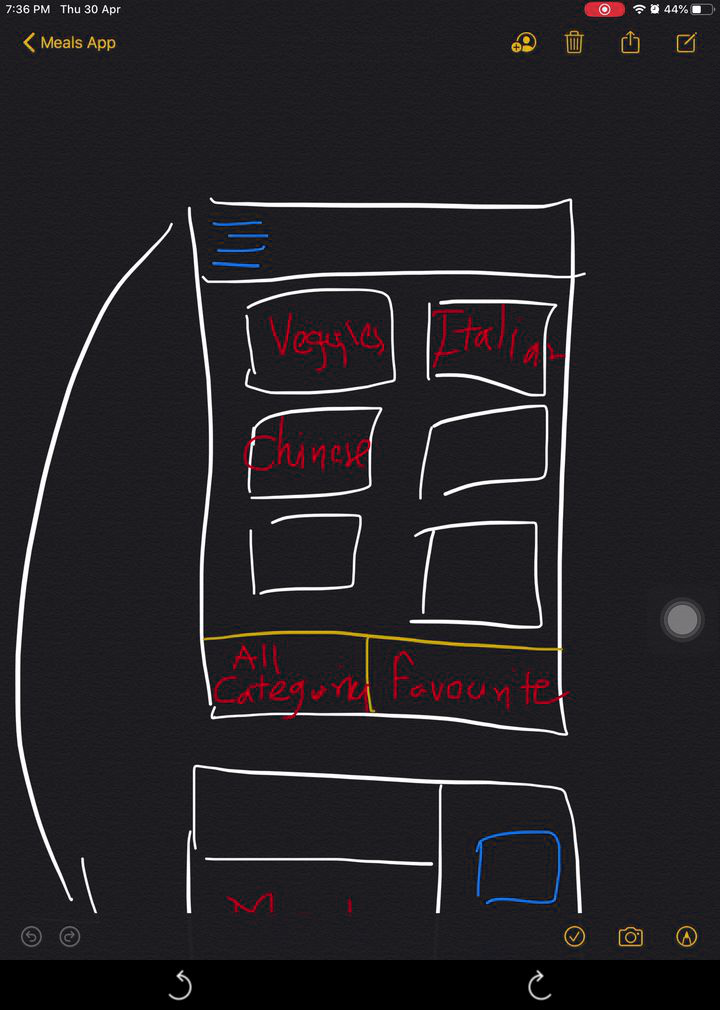 7:36 PM Thu 30 Apr
44%
Meals App
Veggies
Italian
Chinese
All
Category
Favourite